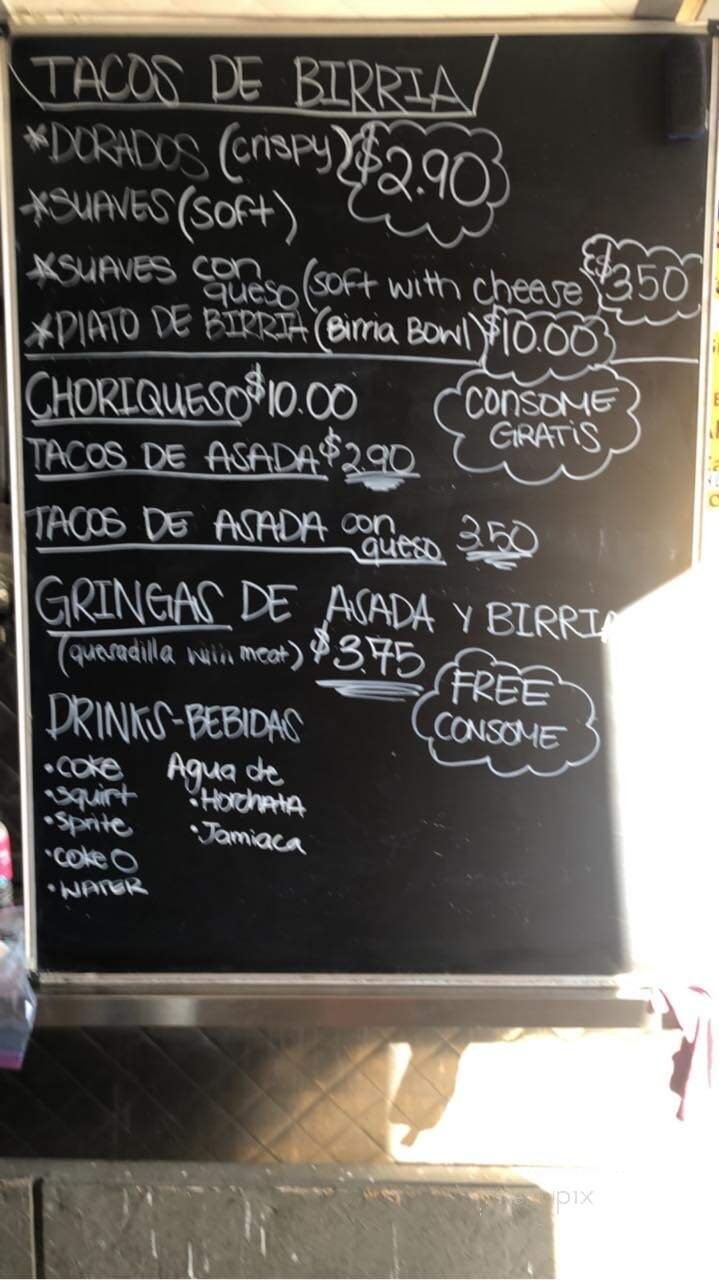 TACOS DE BIRRIA
*DORADOS (crispy) $2.90
*SUAVES (SOFT)
*SUAVES con queso (SOFT with cheese $3.50
*PLATO DE BIRRIA (Birria BOWL) $10.00
CHORIQUESO $10.00
CONSOME
GRATIS
TACOS DE ASADA $2.90
TACOS DE ASADA con queso 3.50
GRINGAS DE ASADA Y BIRRIA
(quesadilla with meat) $3.75
FREE
CONSOME
DRINKS-BEBIDAS
•COKE
•squirt
•sprite
•coke O
•WATER
Agua de
•HORCHATA
•Jamiaca